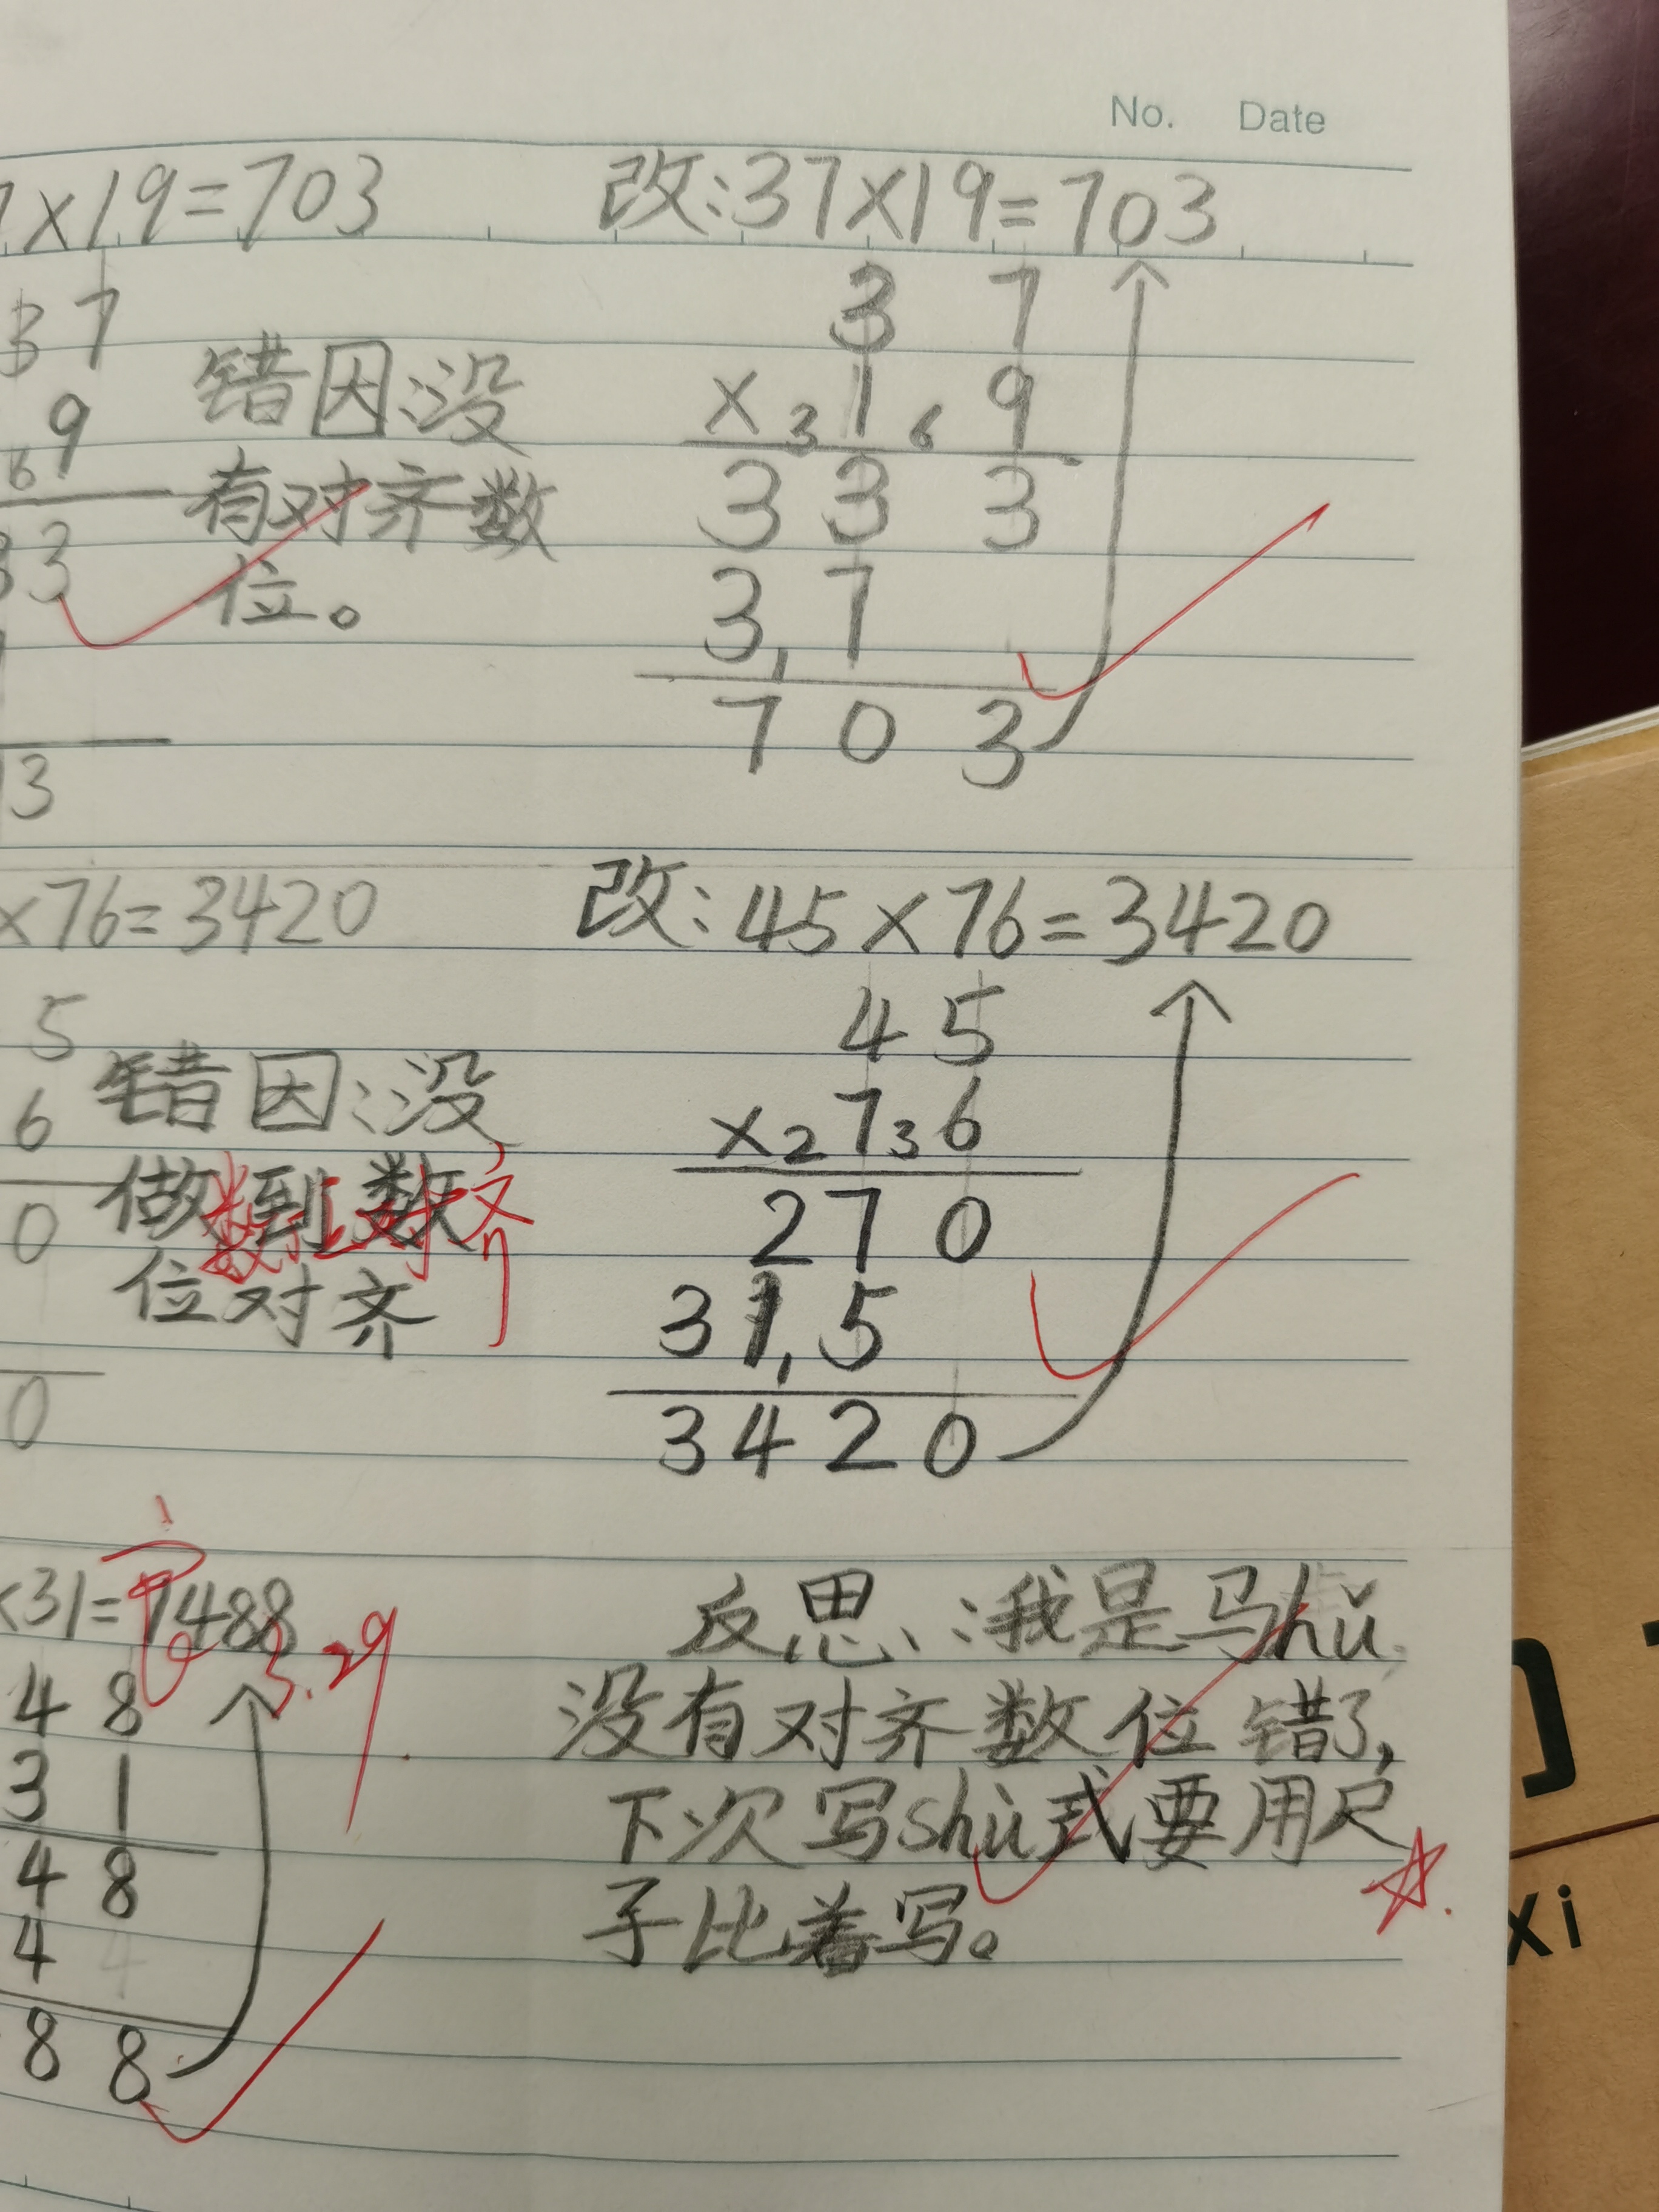 No. Date
7×19=703
改:37×19=703
37
9
6
33
3
错因:没
有对齐数
位。
3 7
× 3 1 6 9
3 3 3
3, 7
7 0 3
×76=3420
改:45×76=3420
5
6
0
0
错因:没
做到数
位对齐
数位对齐
4 5
×2 7 3 6
2 7 0
3 1, 5
3 4 2 0
×31=1488
3.29
4 8
3 1
4 8
4 4
8 8
反思:我是马hǔ
没有对齐数位错了,
下次写shù式要用尺
子比着写。
xi